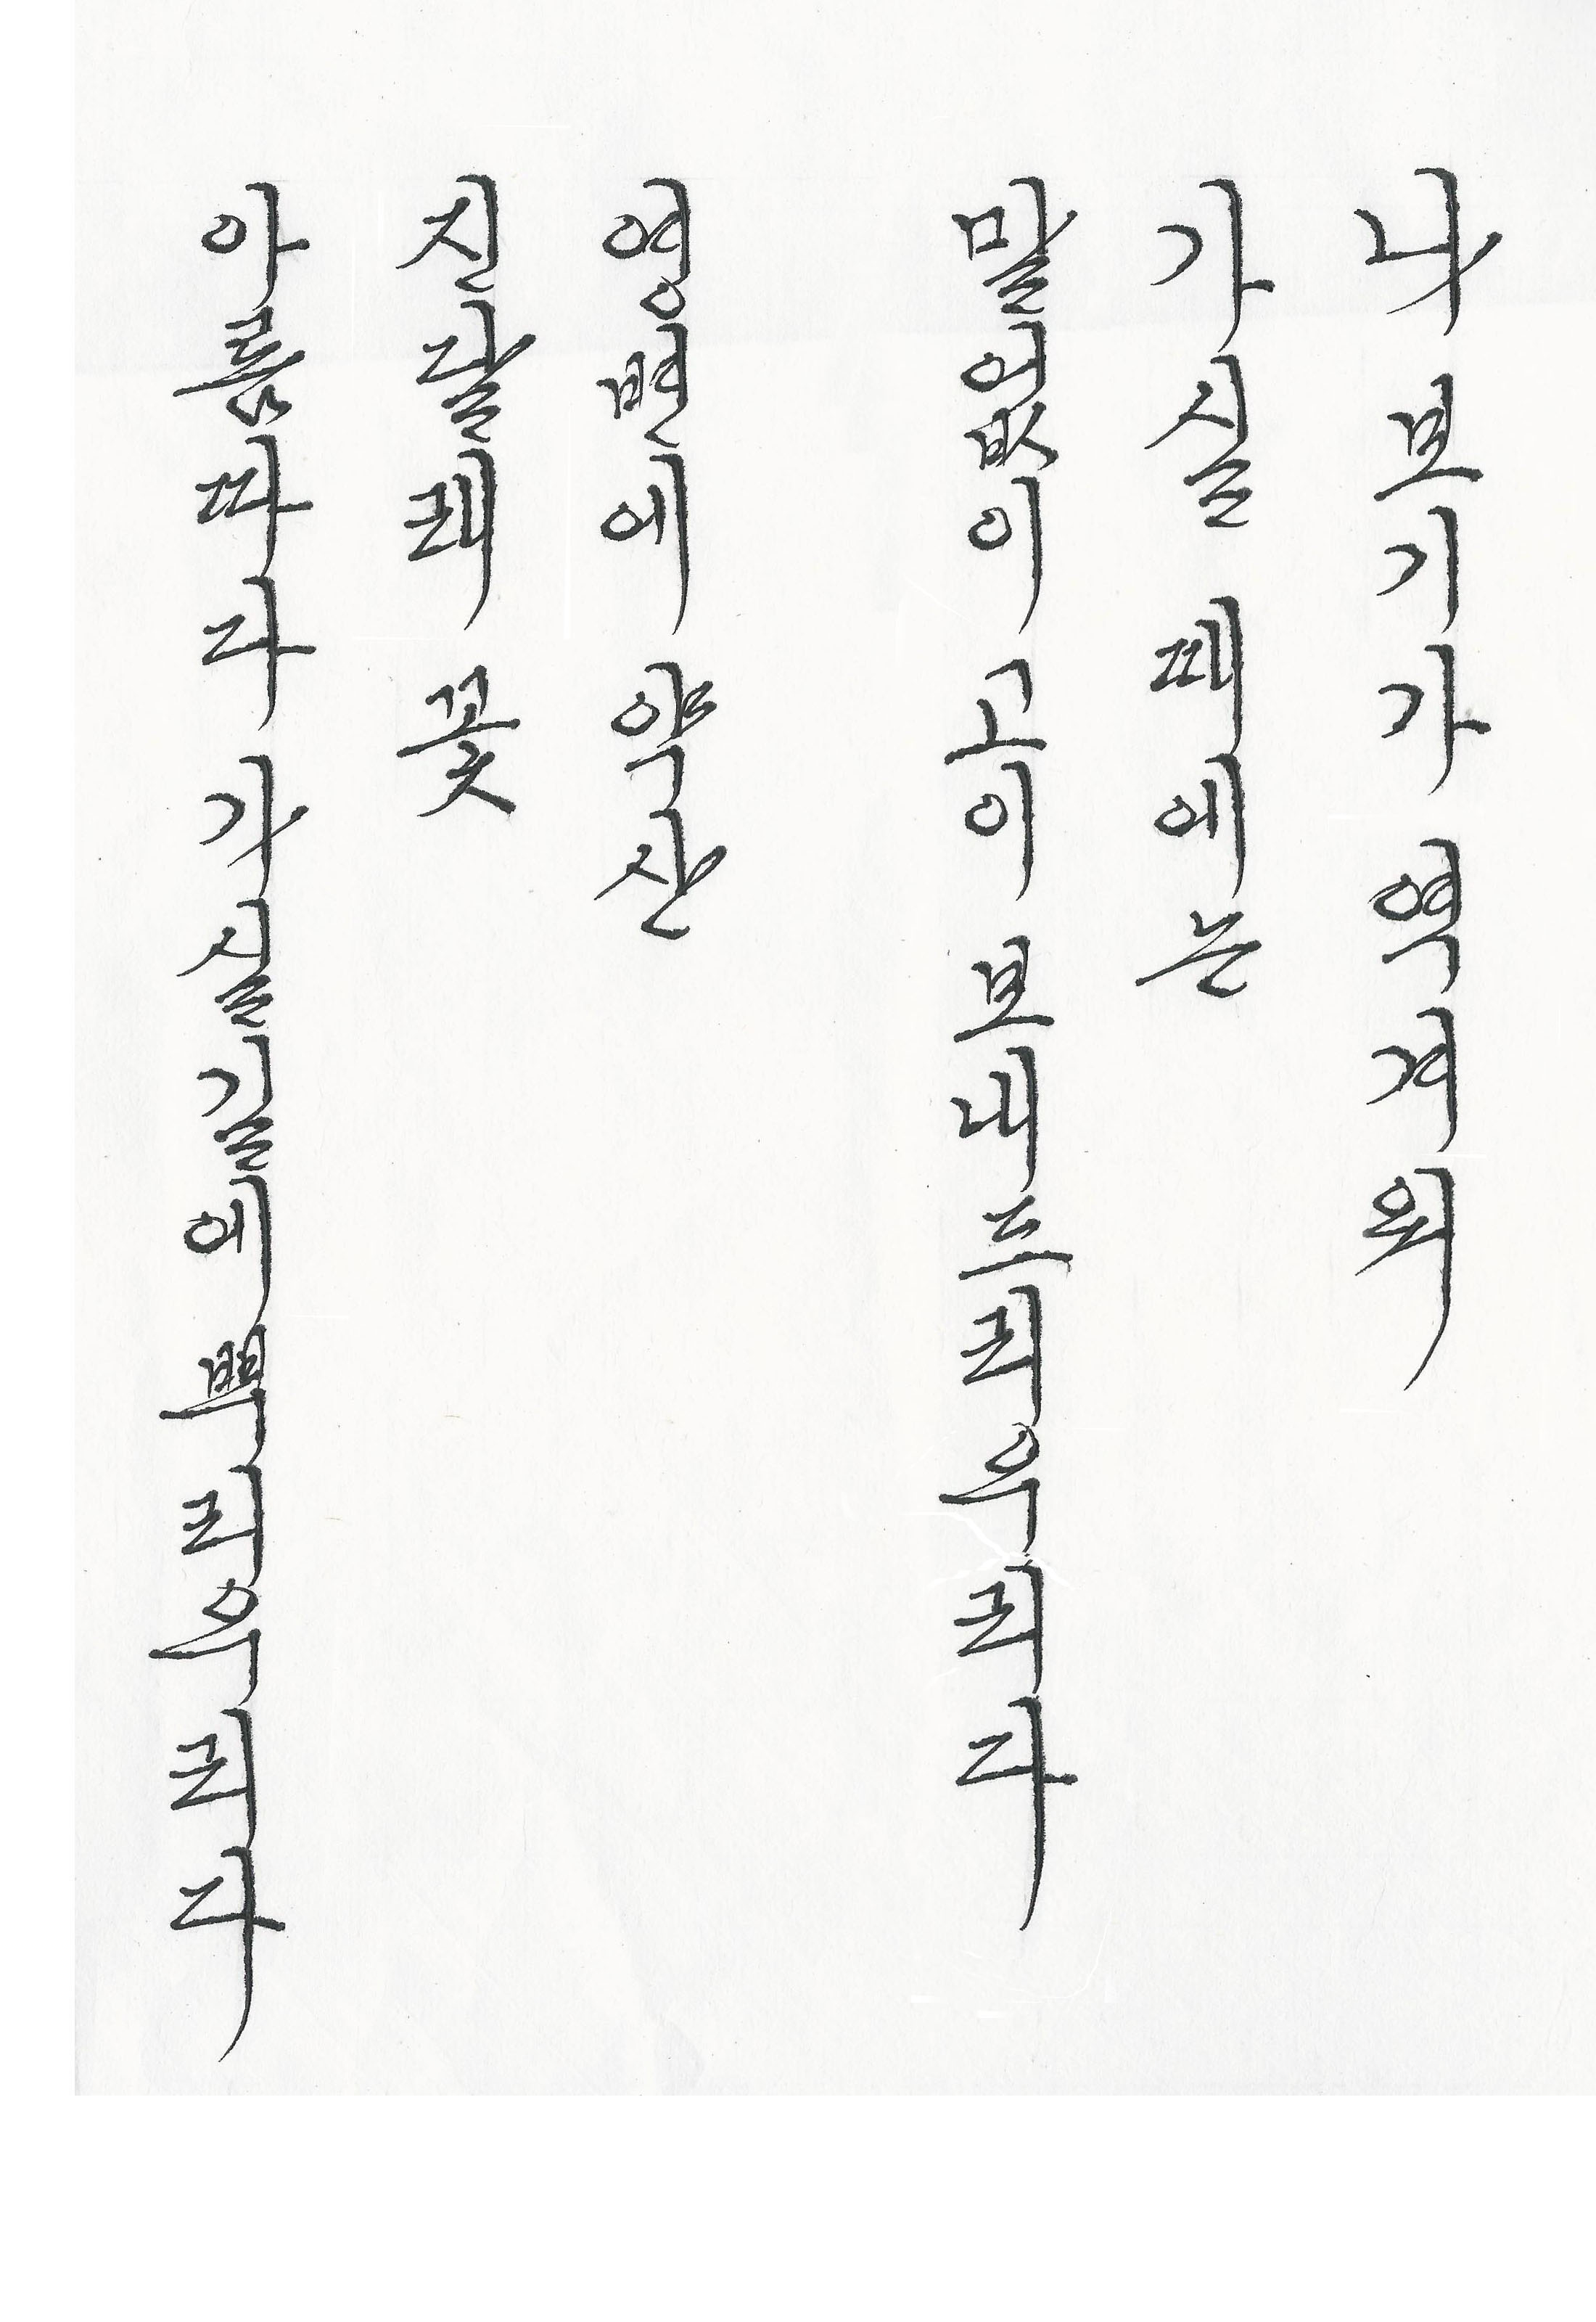 나 보기가 역겨워
가실 때에는
말없이 고이 보내드리우리다
영변에 약산
진달래 꽃
아름따다 가실길에 뿌리우리다